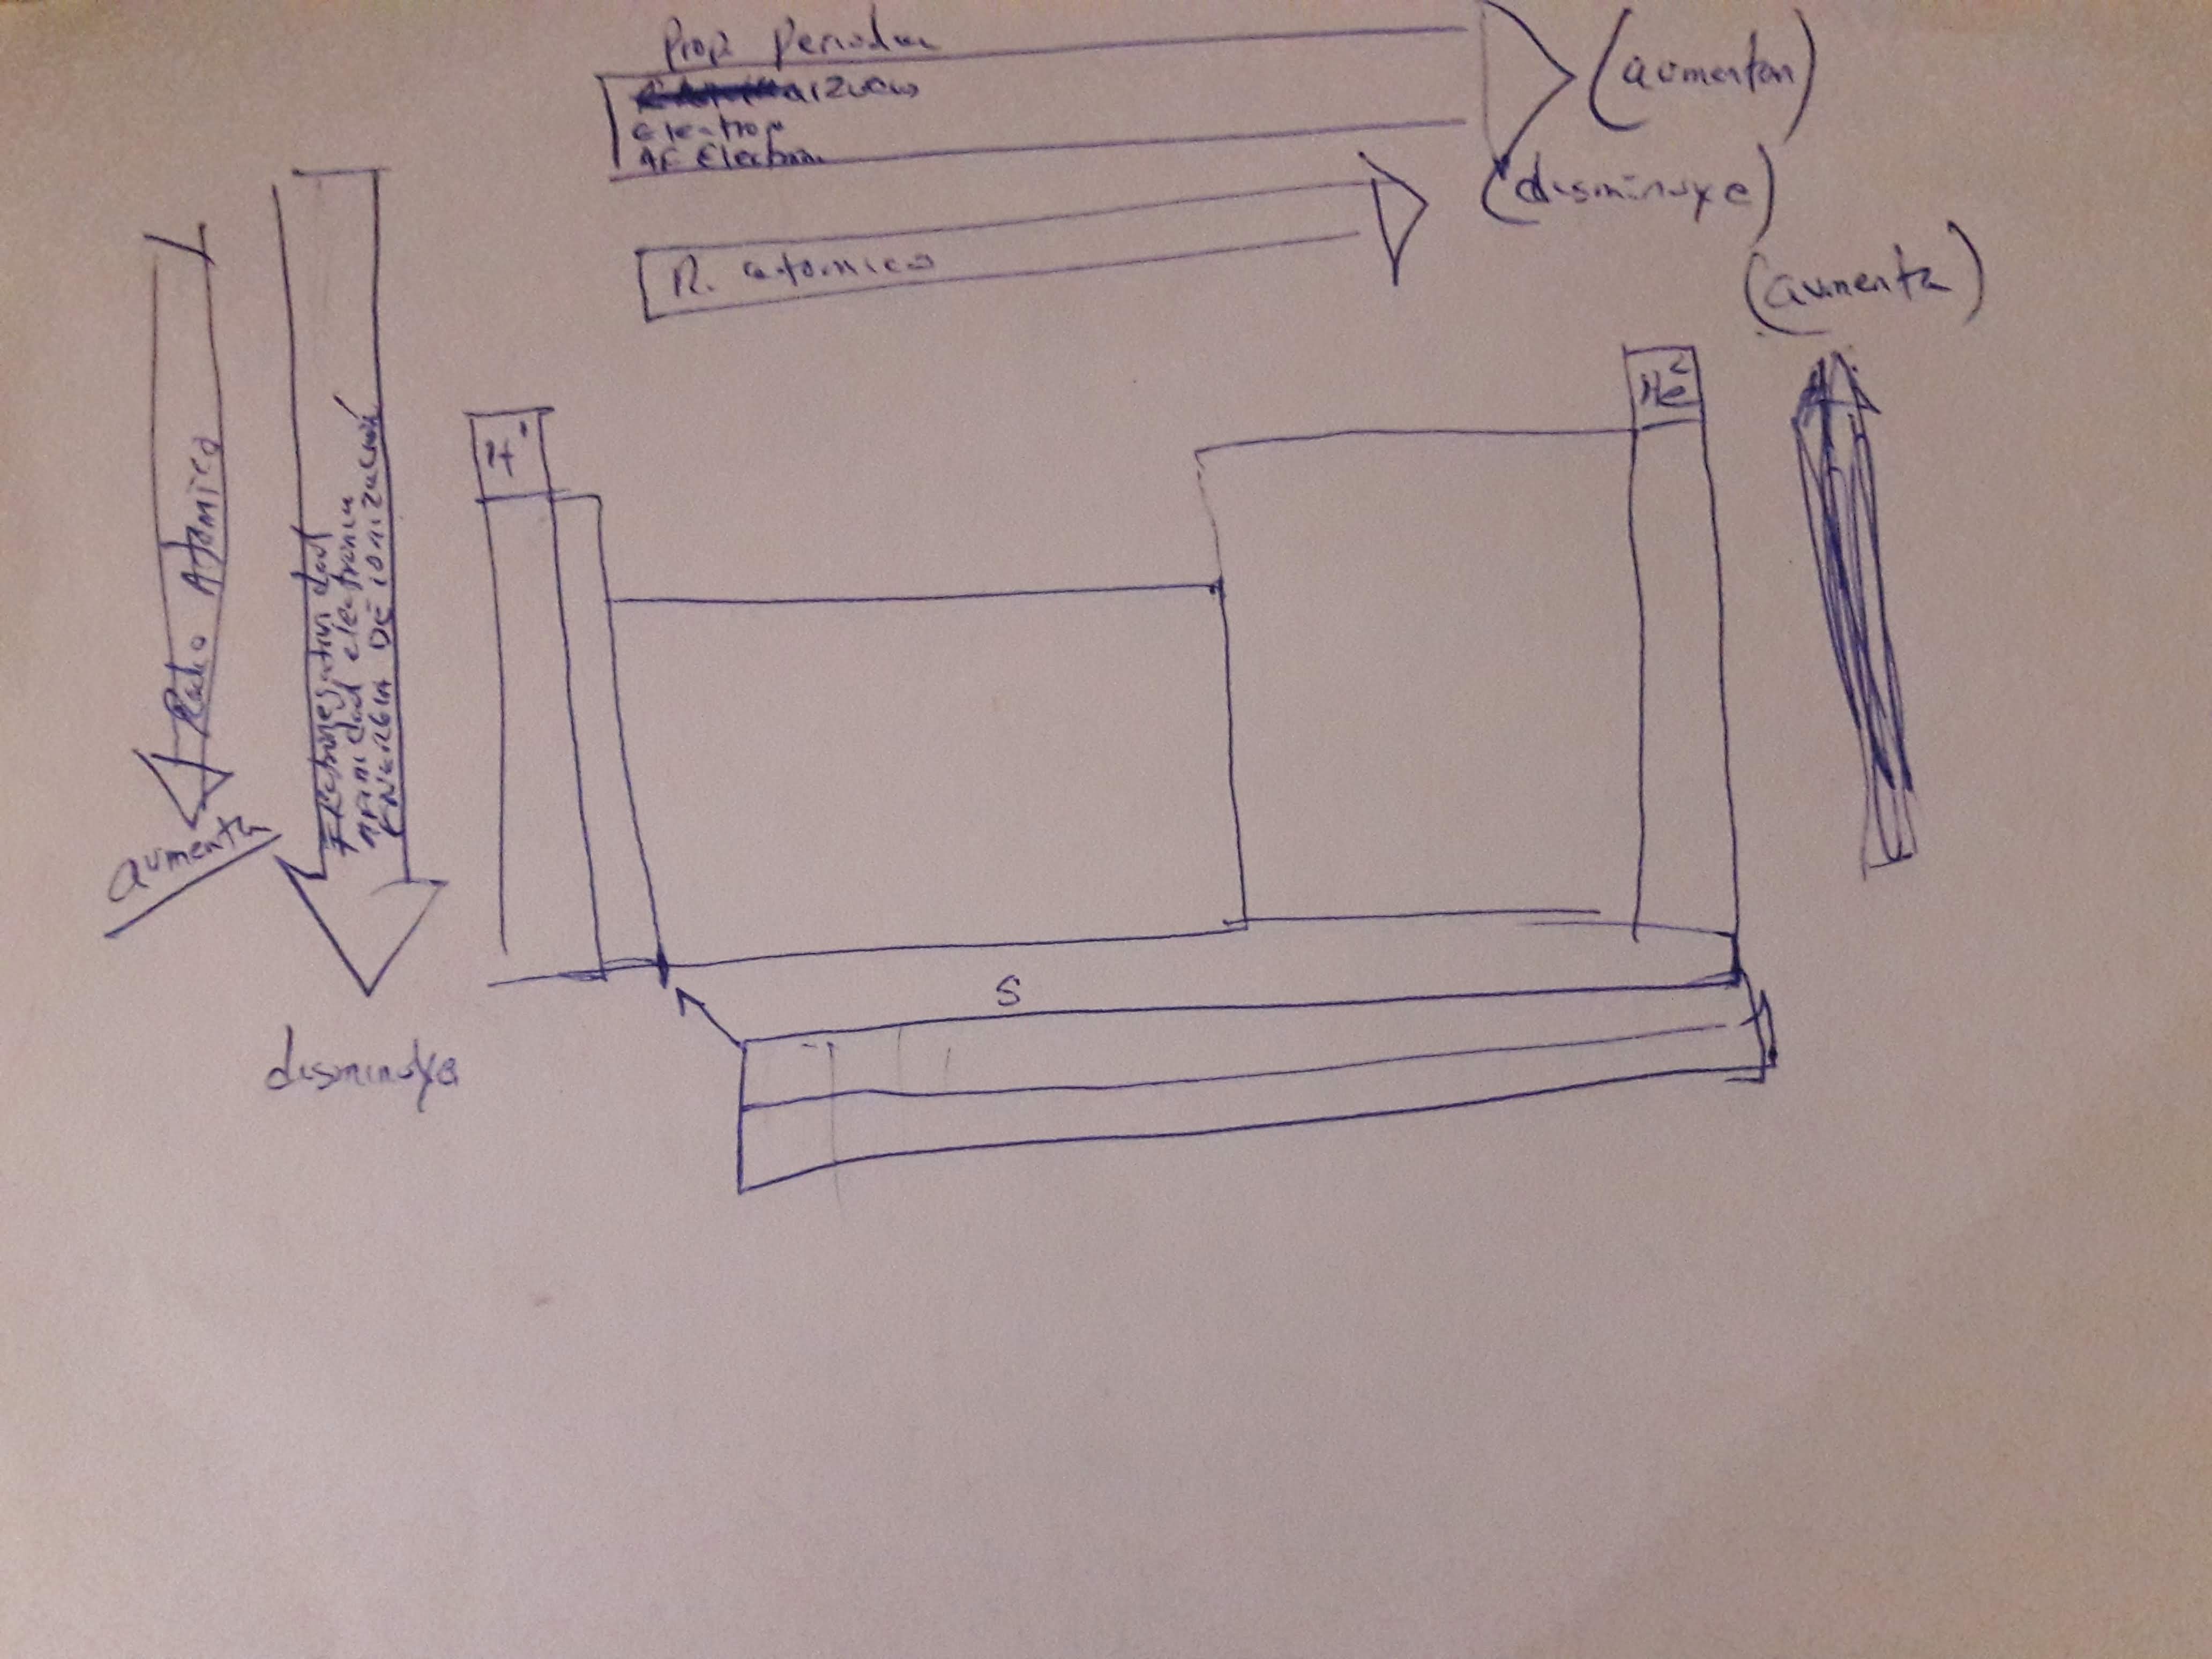 Prop periodica
aizucio
electron
AF Electron
(aumentan)
R. atomico
(disminuye)
(aumenta)
H 1
He 2
Radio Atomico
aumenta
Electronegatividad
AFini dad electronica
ENERGIA DE ionización
disminuye
S